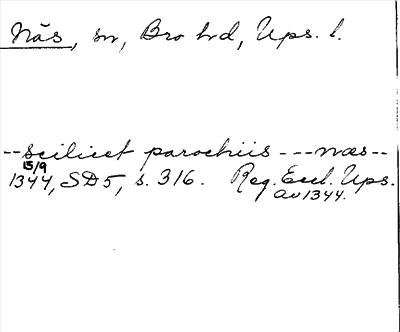 Näs, sn, Bro hd, Ups. l.
--scilicet parochiis ---næs--
15/9
1344, SD5, s. 316. Reg. Eccl. Ups.
av 1344.